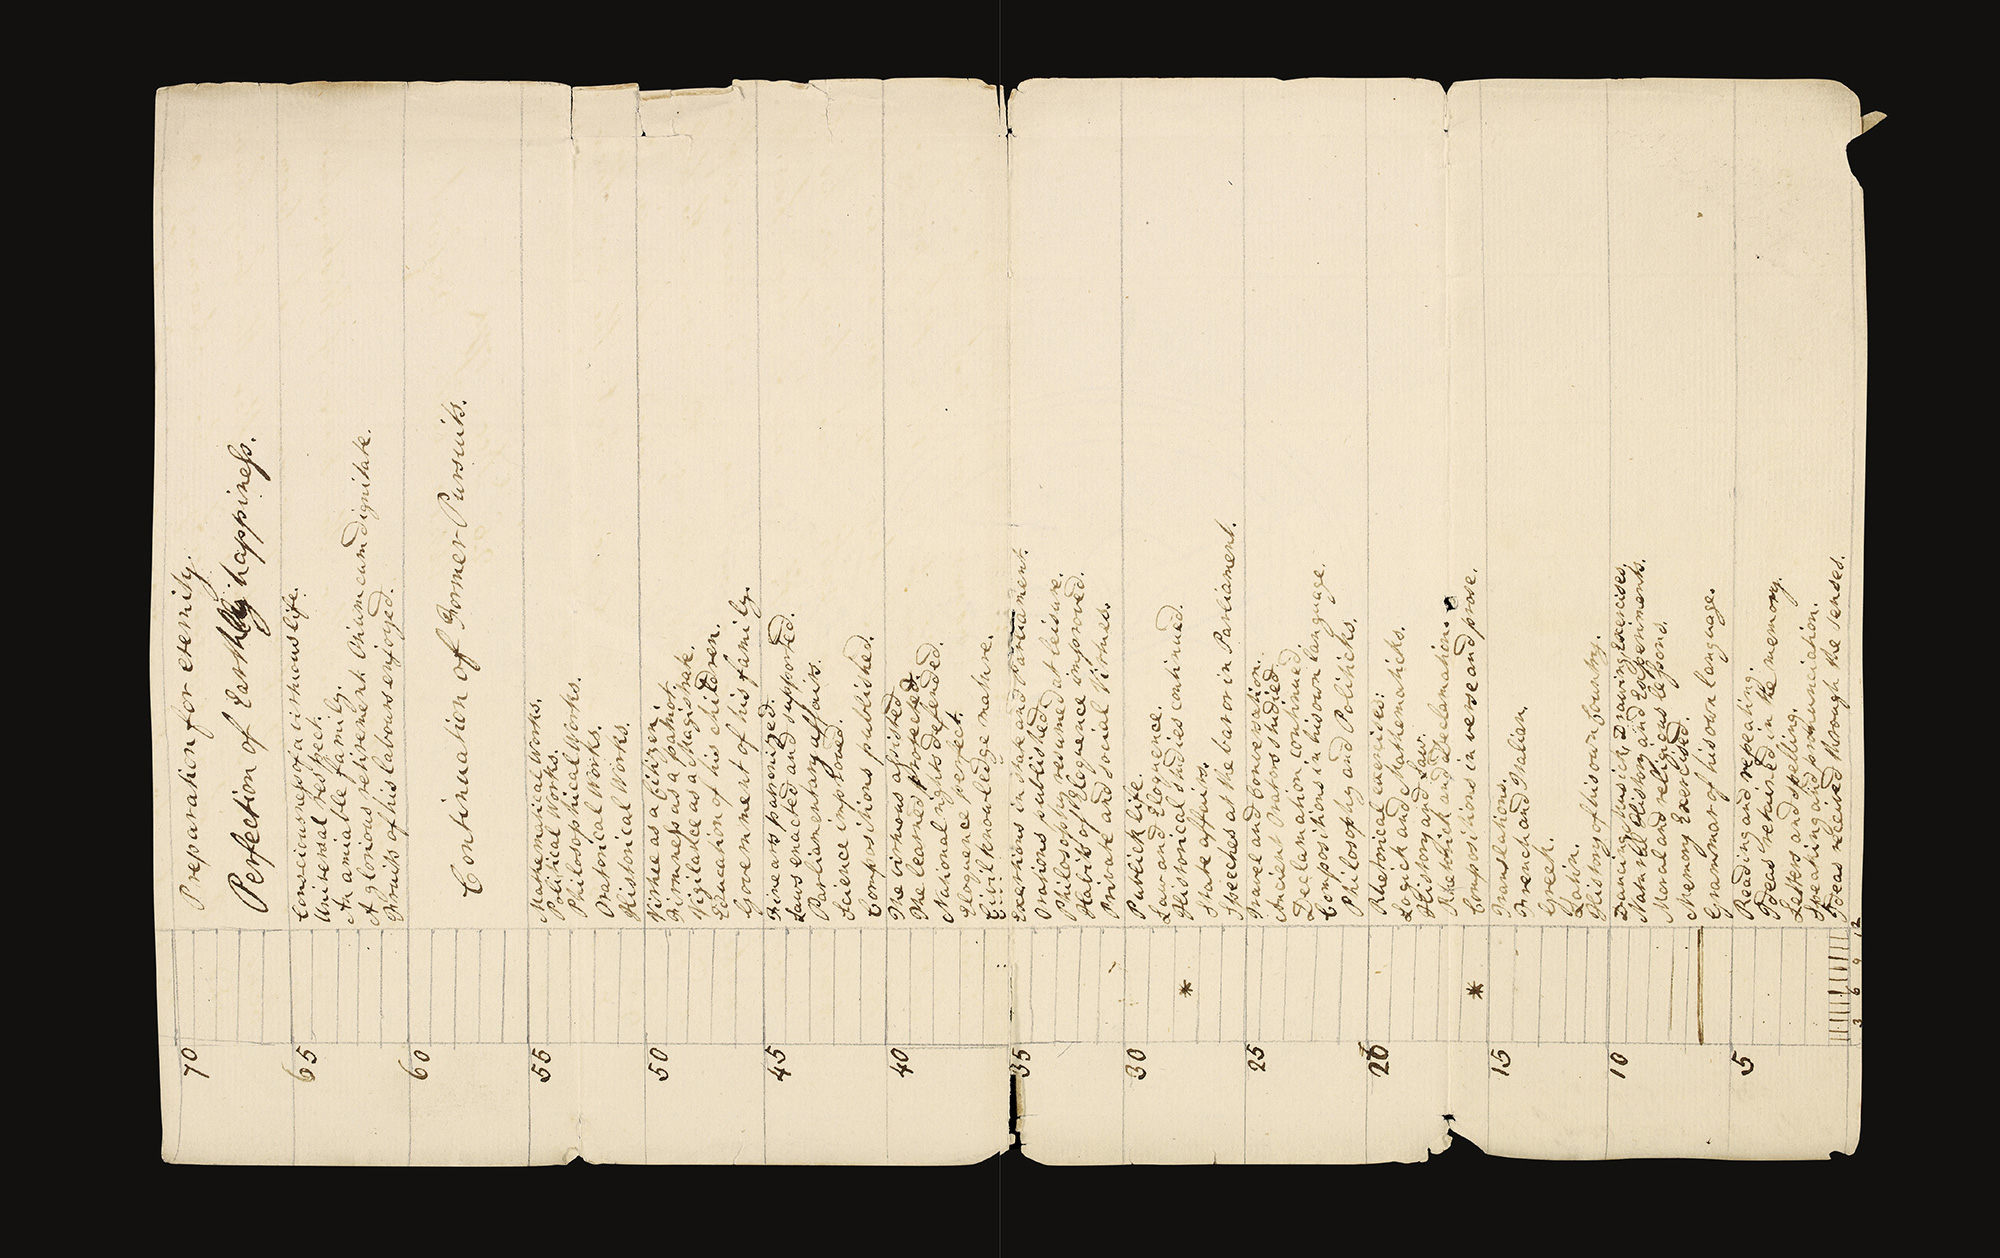 70 Preparation for eternity.
Perfection of Earthly happiness.
65 Consciousness of a virtuous life.
Universal respect.
An amiable family.
A glorious retirement. Otium cum dignitate.
Fruits of his labours enjoyed.
60
Continuation of Former Pursuits.
55 Mathematical Works.
Political Works.
Philosophical Works.
Oratorical Works.
Historical Works.
50 Virtue as a Citizen.
Firmness as a patriot.
Vigilance as a Magistrate.
Education of his children.
Government of his family.
45 Fine arts patronized.
Laws enacted and supported.
Parliamentary affairs.
Science improved.
Compositions published.
40 The virtuous assisted.
The learned protected.
National rights defended.
Eloquence perfect.
Civil knowledge mature.
35 Exertions in State and Parliament.
Orations published.
Philosophy resumed at leisure.
Habits of Eloquence improved.
Private and social Virtues.
30 Publick life.
Law and Eloquence.
Historical studies continued.
State affairs.
Speeches at the bar or in Parliament.
25 Travel and conversation.
Ancient Orators studied.
Declamation continued.
Compositions in his own language.
Philosophy and Politicks.
20 Rhetorical exercises.
Logick and Mathematicks.
History and Law.
Rhetorick and Declamation.
Compositions in verse and prose.
15 Translations.
French and Italian.
Greek.
Latin.
History of his own Country.
10 Dancing, Musick, Drawing, Exercises.
Natural History and Experiments.
Moral and religious lessons.
Memory Exercised.
Grammar of his own language.
5 Reading and repeating.
Ideas retained in the memory.
Letters and spelling.
Speaking and pronunciation.
Ideas received through the senses.
3 6 9 12